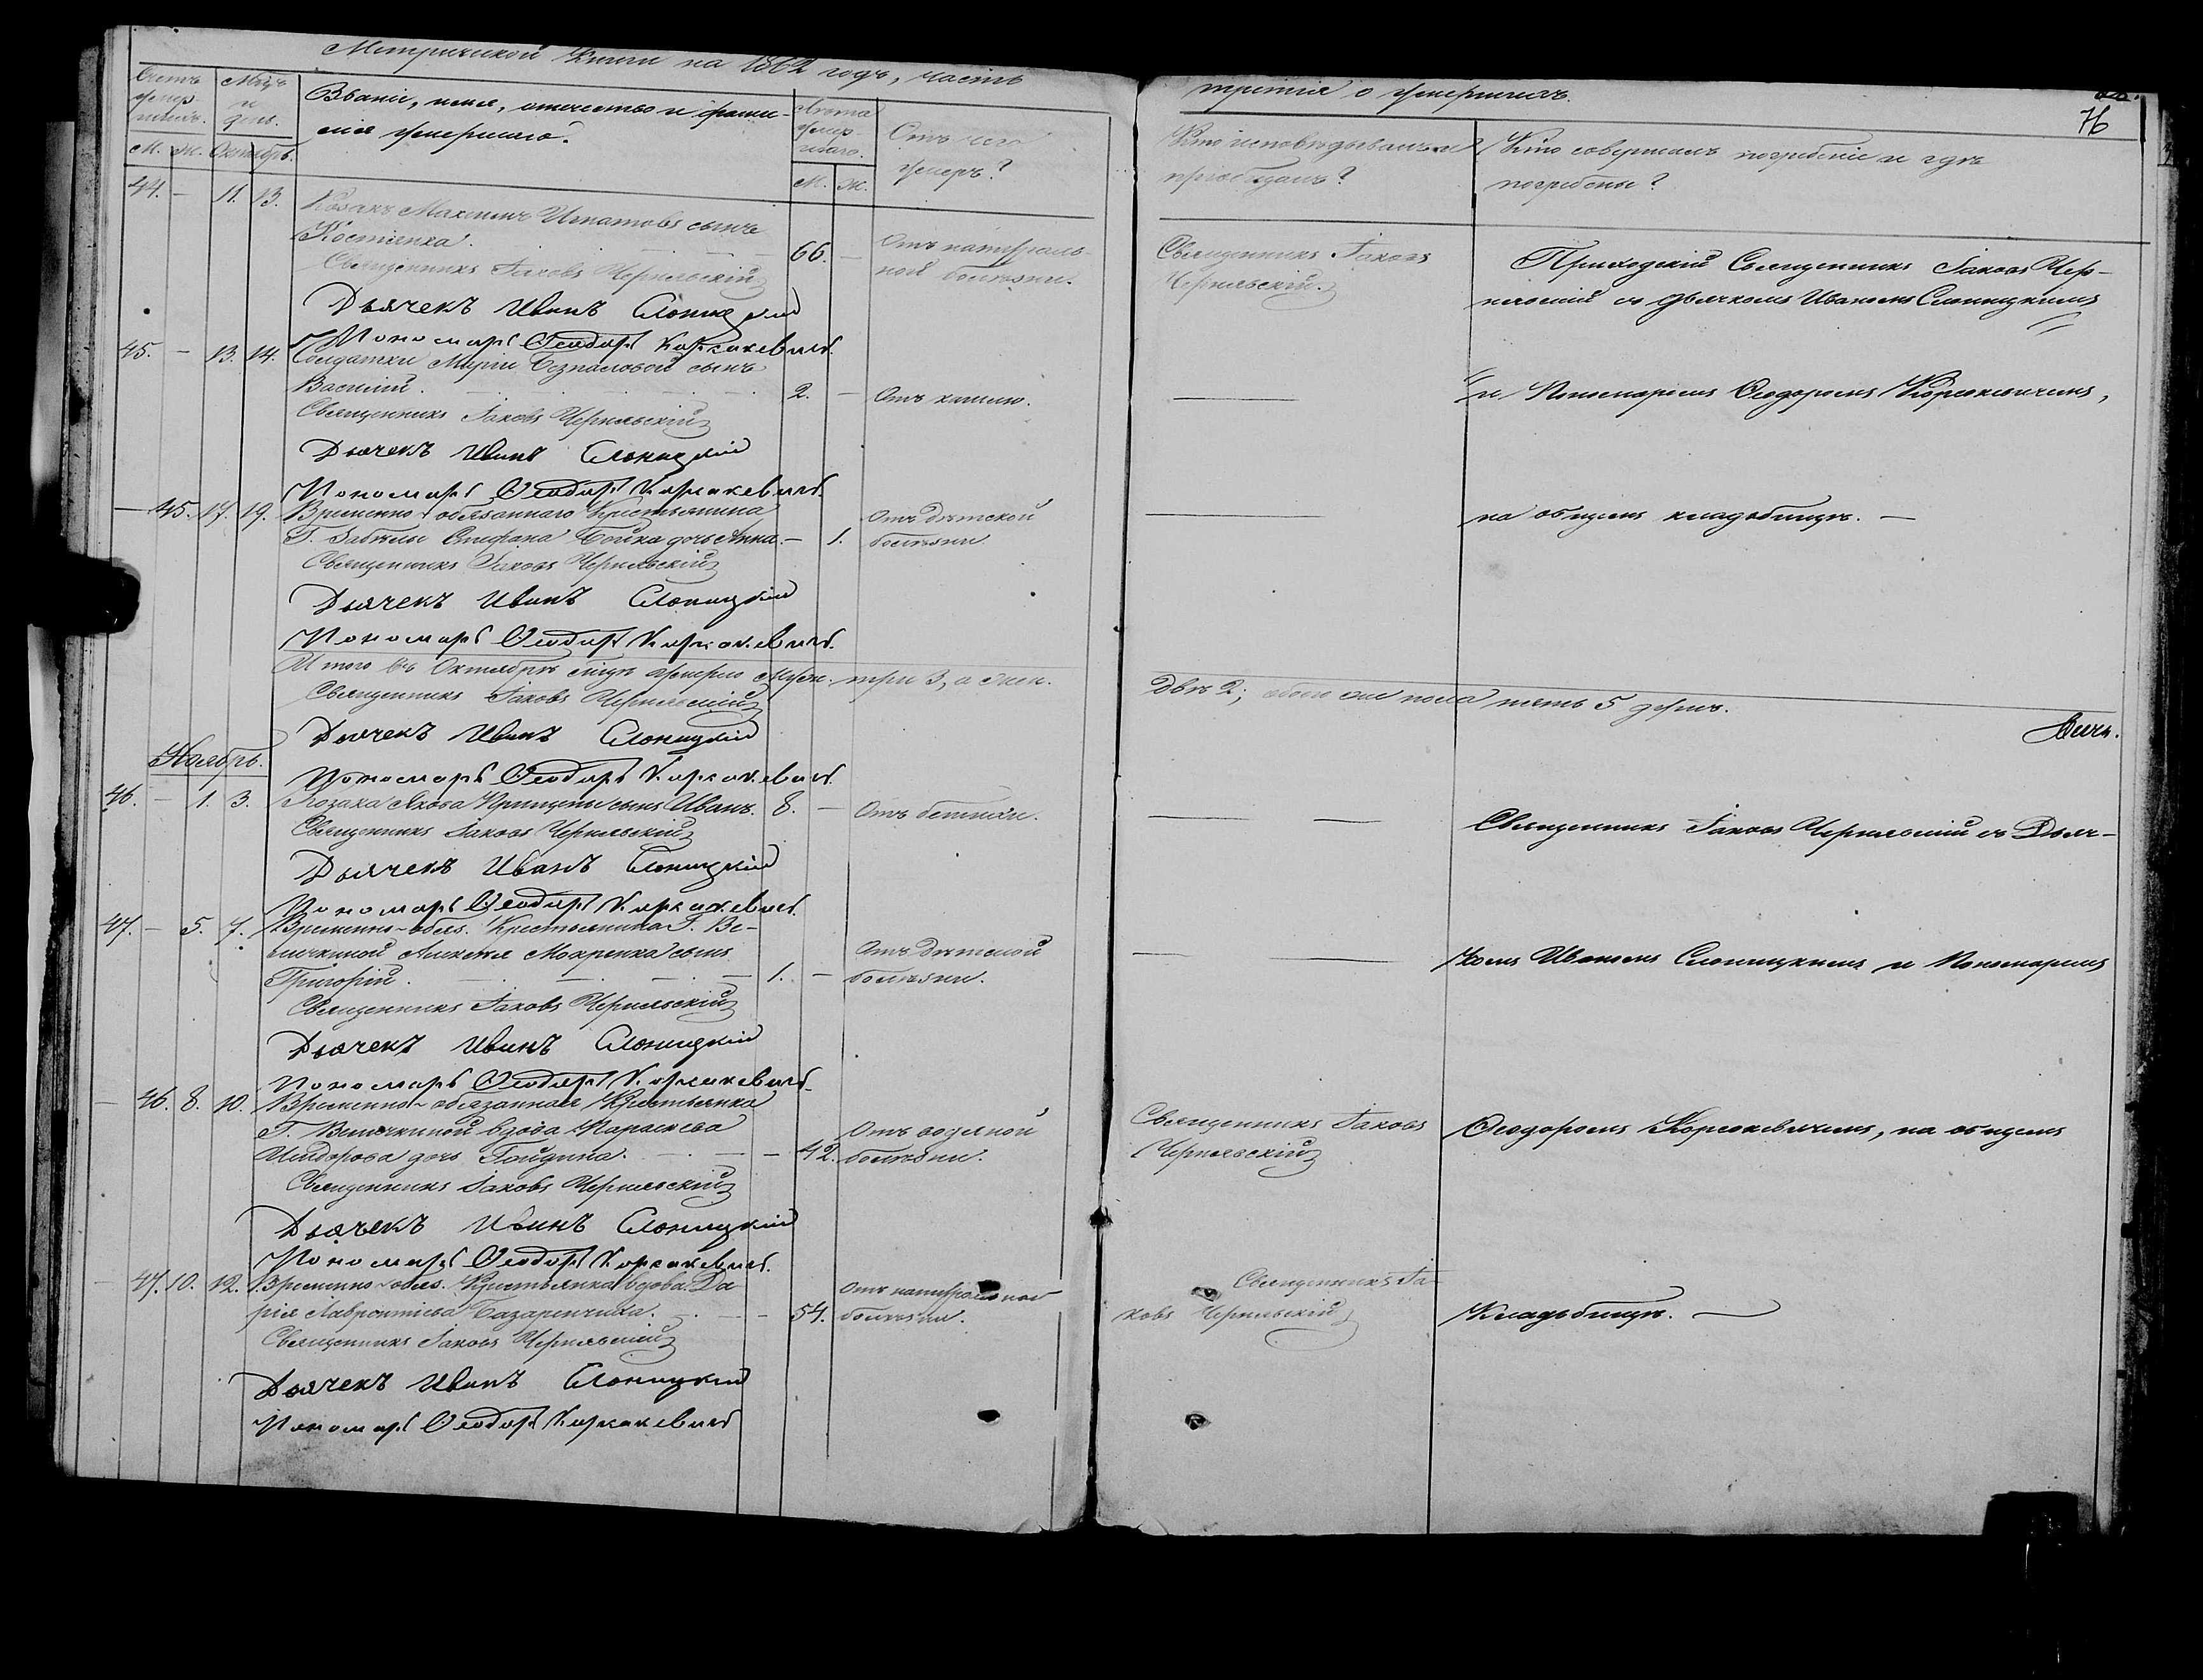 Метрической Книги на 1862 годъ, часть
третія о умершихъ.
76
Счетъ умер-шихъ.
М. Ж.
Мѣс. и день.
Октябрь.
Званіе, имя, отчество и фами-
лія умершаго.
Лѣта умер-шаго.
М. Ж.
Отъ чего
умеръ?
Кто исповѣдывалъ и
пріобщалъ?
Кто совершалъ погребеніе и гдѣ
погребены?
44. — 11. 13. Козакъ Максимъ Игнатовъ сынъ
Костенко. 66. — Отъ натураль-
ной болѣзни.
Священникъ Іаковъ
Чернявскій.
Приходскій Священникъ Іаковъ Чер-
нявскій съ дьячкомъ Иваномъ Слоницкимъ
Священникъ Іаковъ Чернявскій
Дьячекъ Иванъ Слоницкій
Пономарь Ѳеодоръ Корсакевичъ.
45. — 13. 14. Солдатки Маріи сынъ
Василій. 2. — Отъ кашлю. —
и Пономаремъ Ѳеодоромъ Корсакевичемъ,
Священникъ Іаковъ Чернявскій
Дьячекъ Иванъ Слоницкій
Пономарь Ѳеодоръ Корсакевичъ.
— 45. 17. 19. Временно-обязаннаго Крестьянина
Г. Забѣлы Стефана Бойка дочь Анна. — 1. Отъ дѣтской
болѣзни. —
на общемъ кладбищѣ. —
Священникъ Іаковъ Чернявскій
Дьячекъ Иванъ Слоницкій
Пономарь Ѳеодоръ Корсакевичъ.
Итого въ Октябрѣ мѣсяцѣ умерло Муж. три 3, а жен.
двѣ 2; обоего же пола пять 5 душъ.
Священникъ Іаковъ Чернявскій
Дьячекъ Иванъ Слоницкій
Пономарь Ѳеодоръ Корсакевичъ.
Ноябрь.
46. — 1. 3. Козака Якова сынъ Иванъ. 8. — — —
Священникъ Іаковъ Чернявскій съ Дьяч-
Священникъ Іаковъ Чернявскій
Дьячекъ Иванъ Слоницкій
Пономарь Ѳеодоръ Корсакевичъ.
47. — 5. 7. Временно-обяз. Крестьянина Г. Ве-
личкиной Алексѣя Мокренка сынъ
Григорій. 1. — Отъ дѣтской
болѣзни. — —
комъ Иваномъ Слоницкимъ и Пономаремъ
Священникъ Іаковъ Чернявскій
Дьячекъ Иванъ Слоницкій
Пономарь Ѳеодоръ Корсакевичъ.
— 46. 8. 10. Временно-обязанная Крестьянка
Г. Величкиной вдова Параскева
дочь — 42. Отъ водяной
болѣзни.
Священникъ Іаковъ
Чернявскій
Ѳеодоромъ Корсакевичемъ, на общемъ
Священникъ Іаковъ Чернявскій
Дьячекъ Иванъ Слоницкій
Пономарь Ѳеодоръ Корсакевичъ.
— 47. 10. 12. Временно-обяз. Крестьянка вдова Да-
рія Лаврентіева — 54. Отъ натуральной
болѣзни.
Священникъ Іа-
ковъ Чернявскій
Кладбищѣ. —
Священникъ Іаковъ Чернявскій
Дьячекъ Иванъ Слоницкій
Пономарь Ѳеодоръ Корсакевичъ